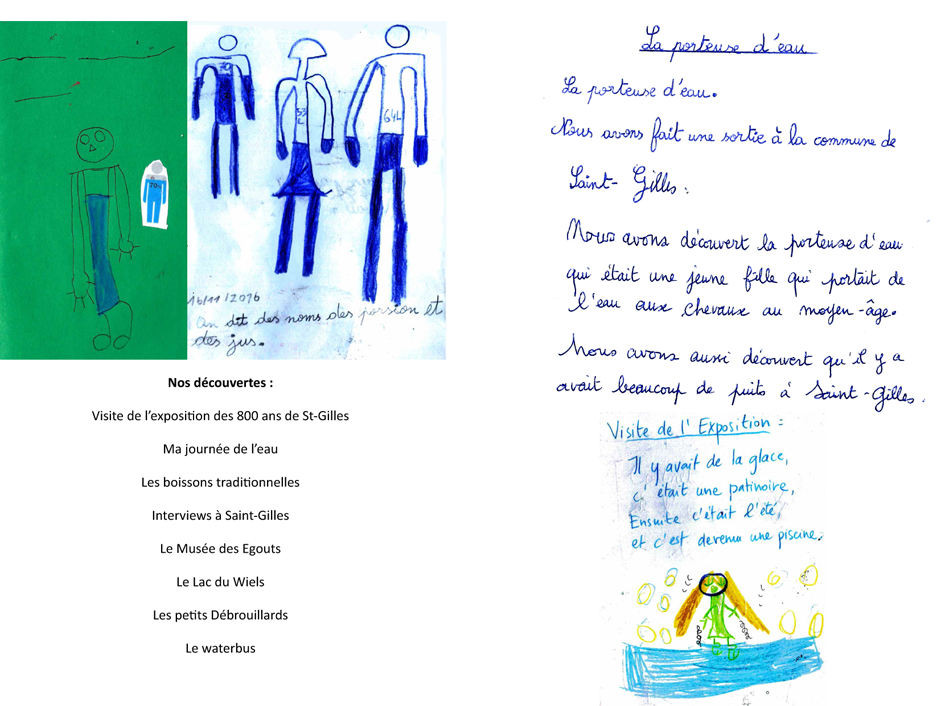 70%
53
L
64L
16/11/2016
on dit des noms des porsion et
des jus.
Nos découvertes :
Visite de l’exposition des 800 ans de St-Gilles
Ma journée de l’eau
Les boissons traditionnelles
Interviews à Saint-Gilles
Le Musée des Egouts
Le Lac du Wiels
Les petits Débrouillards
Le waterbus
La porteuse d'eau
La porteuse d'eau.
Nous avons fait une sortie à la commune de
Saint-Gilles.
Nous avons découvert la porteuse d'eau
qui était une jeune fille qui portait de
l'eau aux chevaux au moyen-âge.
Nous avons aussi découvert qu'il y a
avait beaucoup de puits à Saint-Gilles.
Visite de l'Exposition :
Il y avait de la glace,
c'était une patinoire,
Ensuite c'était l'été,
et c'est devenu une piscine.